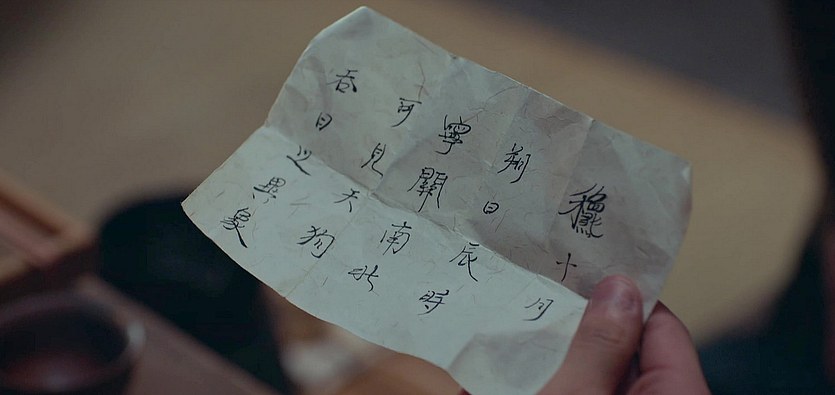 龝十月
朔日辰時
寧關南北
可見天狗
吞日之異象